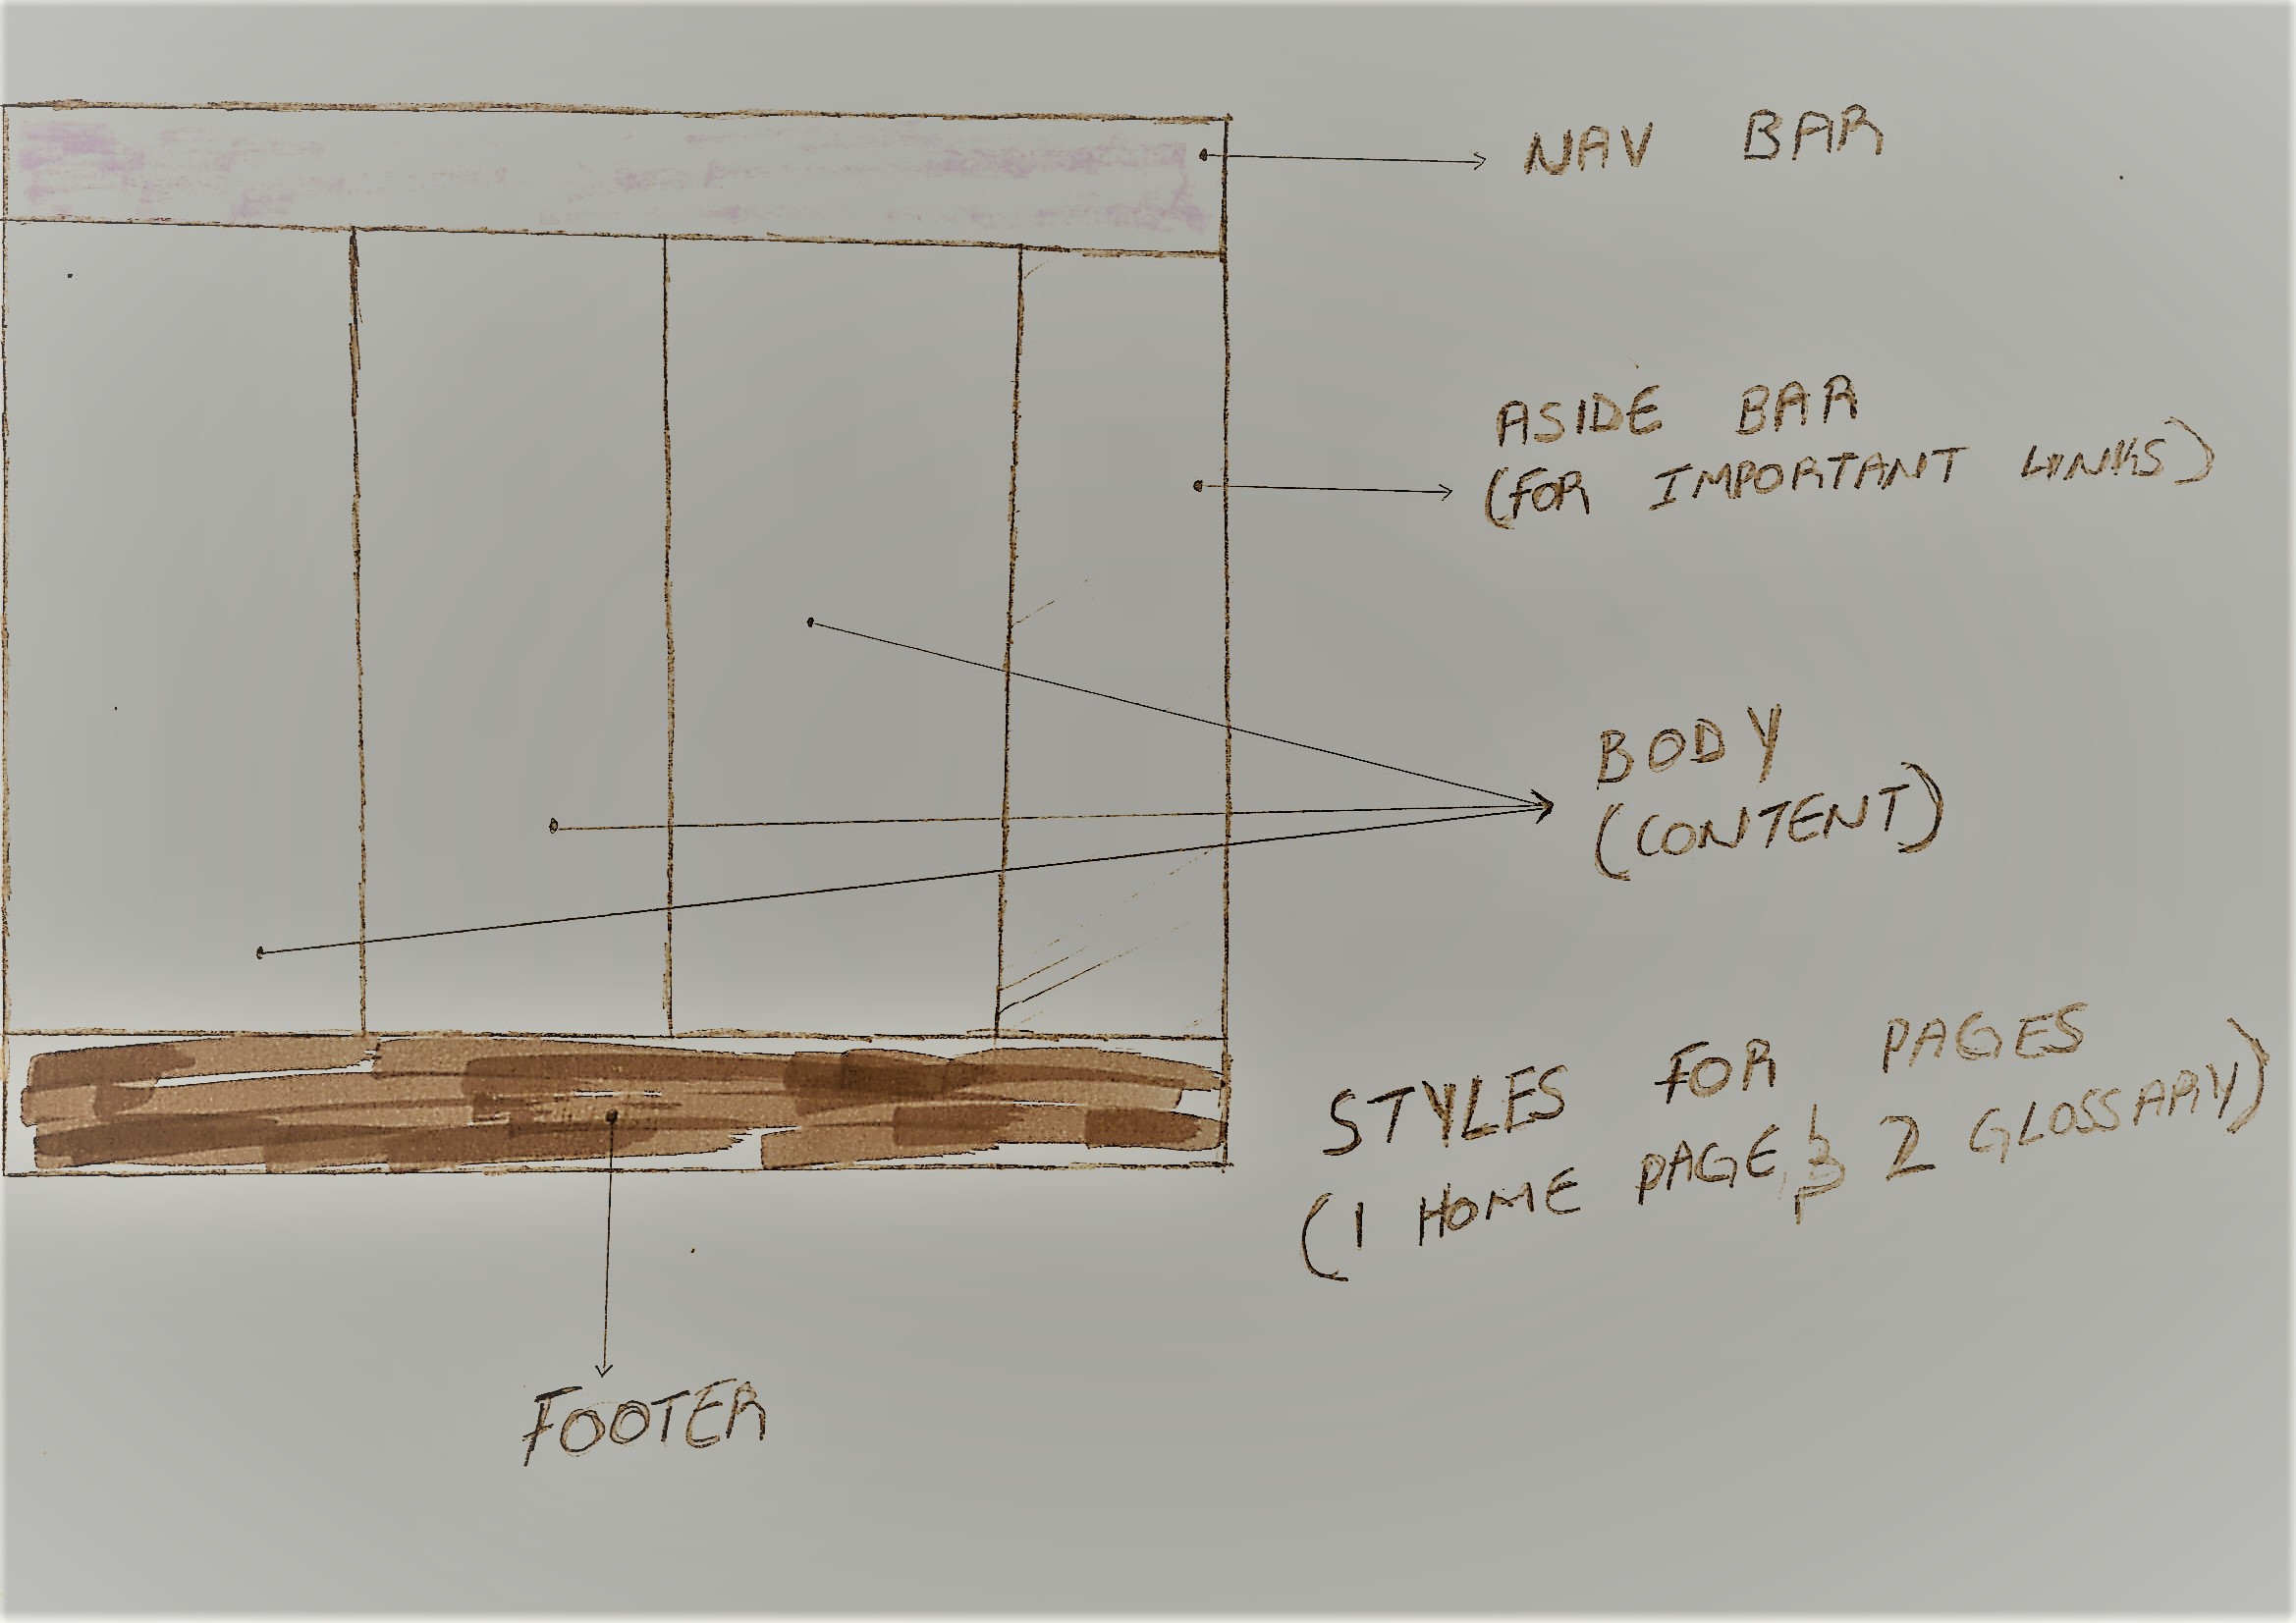 NAV BAR
ASIDE BAR
(FOR IMPORTANT LINKS)
BODY
(CONTENT)
STYLES FOR PAGES
(1 HOME PAGE, & 2 GLOSSARY)
FOOTER